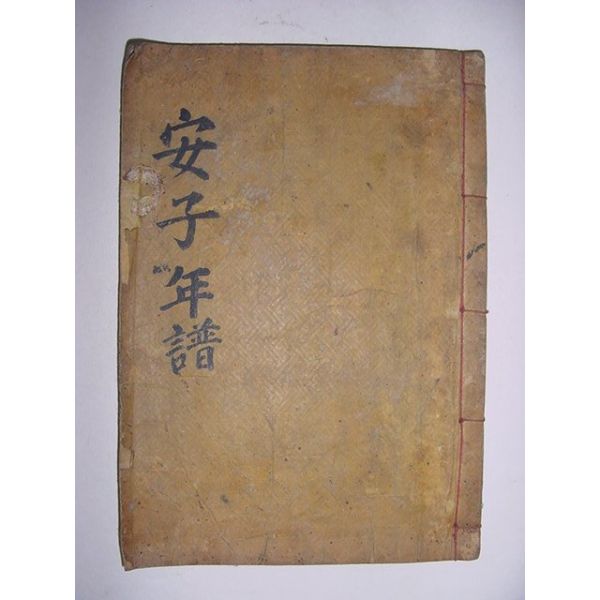 安子年譜